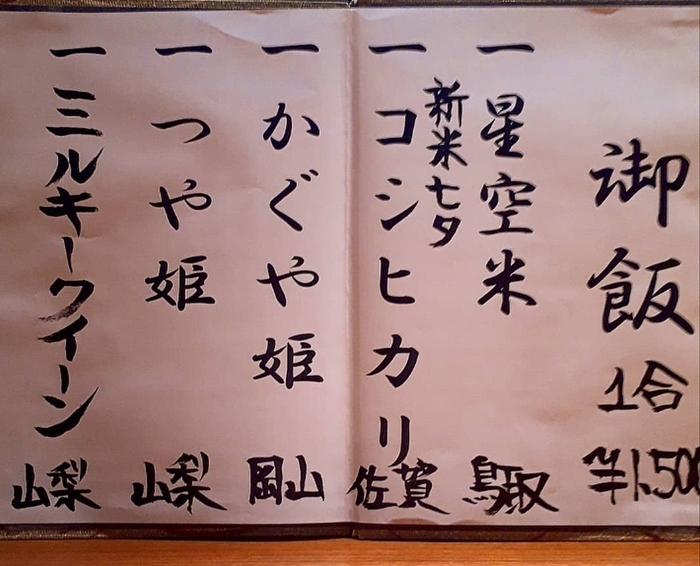 御飯 1合 ¥1,500
一 星空米 鳥取
新米七夕
一 コシヒカリ 佐賀
一 かぐや姫 岡山
一 つや姫 山梨
一 ミルキークイーン 山梨